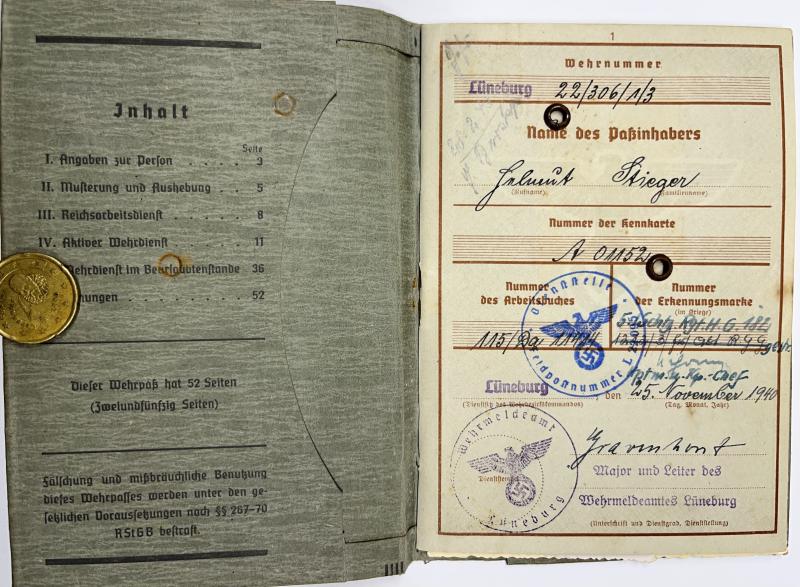 Inhalt
Seite
I. Angaben zur Person . . . . . 3
II. Musterung und Aushebung . . . 5
III. Reichsarbeitsdienst . . . . . 8
IV. Aktiver Wehrdienst . . . . . 11
Wehrdienst im Beurlaubtenstande 36
52
Dieser Wehrpaß hat 52 Seiten
(Zweiundfünfzig Seiten)
Fälschung und mißbräuchliche Benutzung
dieses Wehrpasses werden unter den ge-
setzlichen Voraussetzungen nach §§ 267-70
RStGB bestraft.
1
Wehrnummer
Lüneburg 22/306/1/3
Name des Paßinhabers
Helmut Stieger
(Rufname) (Familienname)
Nummer der Kennkarte
A 01152
Nummer
des Arbeitsbuches
Nummer
der Erkennungsmarke
(im Kriege)
115/Da
Dienststelle
Feldpostnummer
Lüneburg, den 25. November 1940
(Dienstsitz des Wehrbezirkskommandos) (Tag, Monat, Jahr)
Wehrmeldeamt
Lüneburg
Major und Leiter des
Wehrmeldeamtes Lüneburg
(Unterschrift und Dienstgrad, Dienststellung)